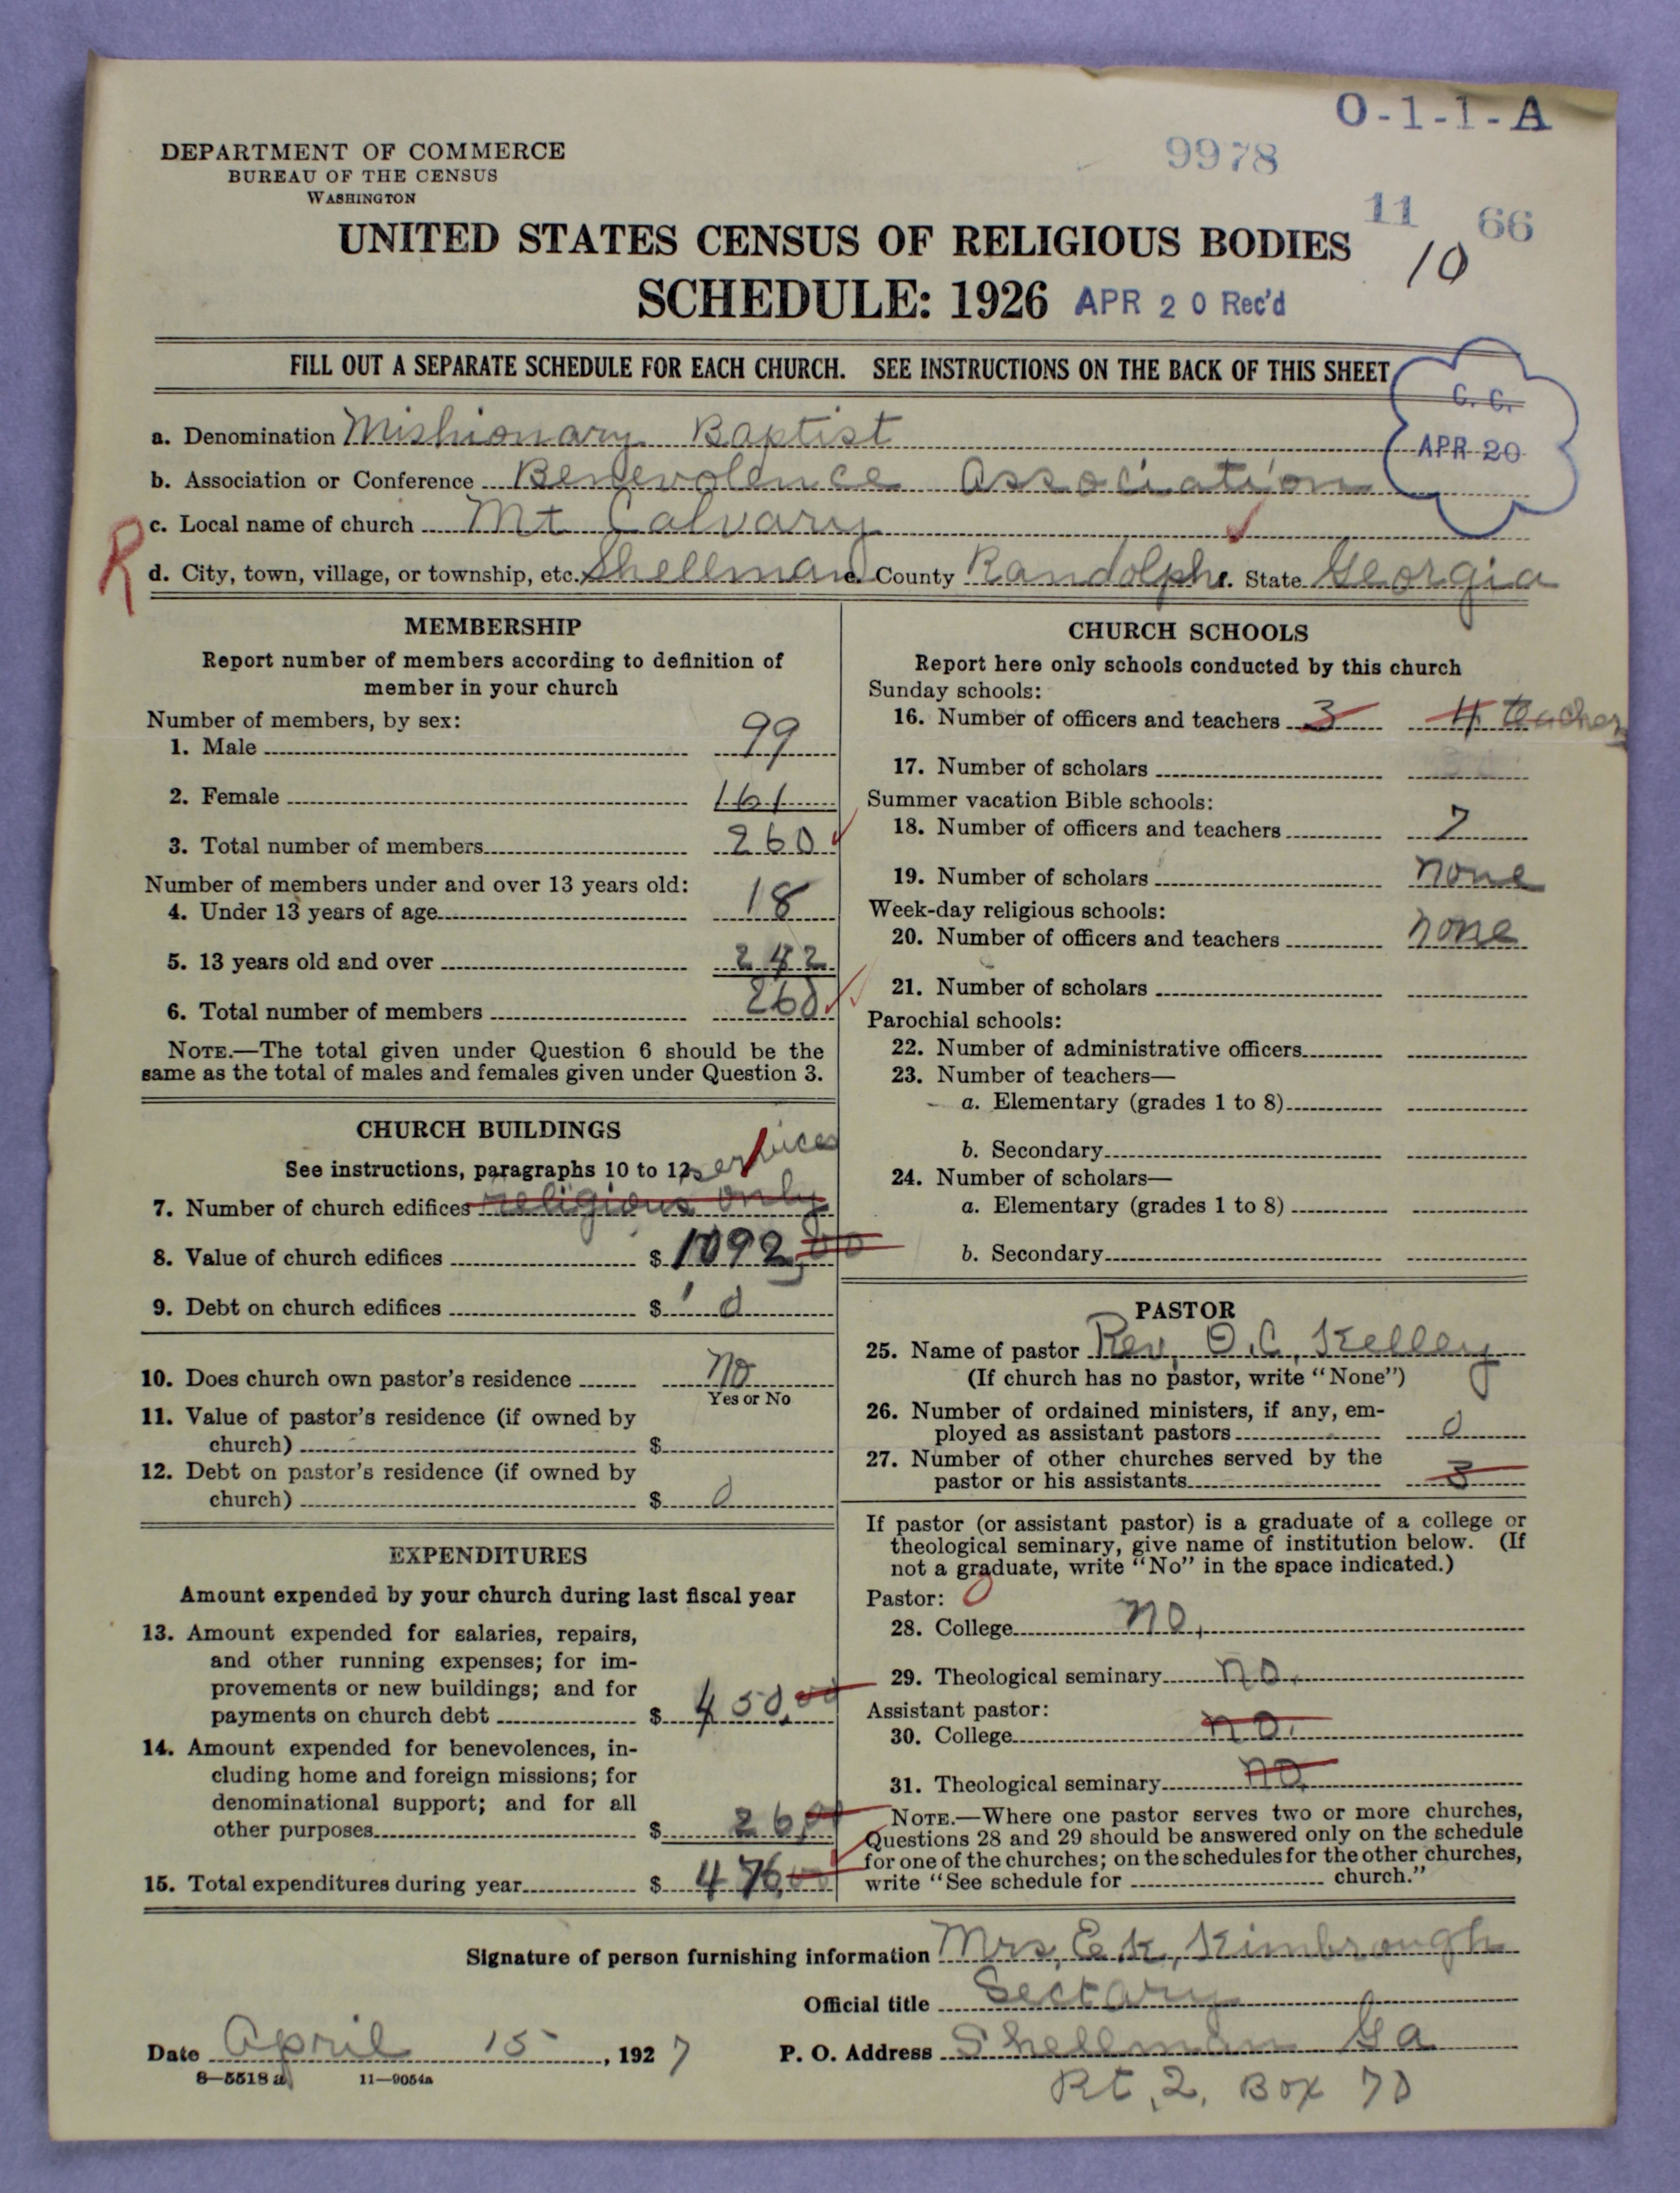 O-1-1-A
9978
DEPARTMENT OF COMMERCE
BUREAU OF THE CENSUS
WASHINGTON
11 66
10
UNITED STATES CENSUS OF RELIGIOUS BODIES
SCHEDULE: 1926 APR 20 Rec'd
FILL OUT A SEPARATE SCHEDULE FOR EACH CHURCH. SEE INSTRUCTIONS ON THE BACK OF THIS SHEET
C. C.
APR 20
a. Denomination Mishionary Baptist
b. Association or Conference Benevolence Association
c. Local name of church Mt Calvary
R
d. City, town, village, or township, etc. Shellman e. County Randolph f. State Georgia
MEMBERSHIP
Report number of members according to definition of
member in your church
Number of members, by sex:
1. Male 99
2. Female 161
3. Total number of members 260
Number of members under and over 13 years old:
4. Under 13 years of age 18
5. 13 years old and over 242
6. Total number of members 260
NOTE.—The total given under Question 6 should be the
same as the total of males and females given under Question 3.
CHURCH BUILDINGS
See instructions, paragraphs 10 to 12 services
7. Number of church edifices religious only
8. Value of church edifices $ 1092,00
9. Debt on church edifices $ 0
10. Does church own pastor's residence No
Yes or No
11. Value of pastor's residence (if owned by
church) $
12. Debt on pastor's residence (if owned by
church) $ 0
EXPENDITURES
Amount expended by your church during last fiscal year
13. Amount expended for salaries, repairs,
and other running expenses; for im-
provements or new buildings; and for
payments on church debt $ 450.00
14. Amount expended for benevolences, in-
cluding home and foreign missions; for
denominational support; and for all
other purposes $ 26,00
15. Total expenditures during year $ 476,00
CHURCH SCHOOLS
Report here only schools conducted by this church
Sunday schools:
16. Number of officers and teachers 3 4 teachers
17. Number of scholars
Summer vacation Bible schools:
18. Number of officers and teachers 7
19. Number of scholars none
Week-day religious schools:
20. Number of officers and teachers none
21. Number of scholars
Parochial schools:
22. Number of administrative officers
23. Number of teachers—
a. Elementary (grades 1 to 8)
b. Secondary
24. Number of scholars—
a. Elementary (grades 1 to 8)
b. Secondary
PASTOR
25. Name of pastor Rev, O.C, Kelley
(If church has no pastor, write "None")
26. Number of ordained ministers, if any, em-
ployed as assistant pastors 0
27. Number of other churches served by the
pastor or his assistants 3
If pastor (or assistant pastor) is a graduate of a college or
theological seminary, give name of institution below. (If
not a graduate, write "No" in the space indicated.)
Pastor: 0
28. College no,
29. Theological seminary no.
Assistant pastor:
30. College no.
31. Theological seminary no
NOTE.—Where one pastor serves two or more churches,
Questions 28 and 29 should be answered only on the schedule
for one of the churches; on the schedules for the other churches,
write "See schedule for church."
Signature of person furnishing information Mrs, E.K, Kimbrough
Official title Sectary
Date April 15, 1927 P. O. Address Shellman Ga
8—5518 a 11—9054a
Rt, 2, Box 70